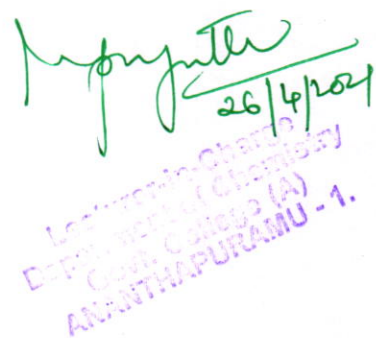 26/4/2021
Lecturer-in-Charge
Department of Chemistry
Govt. College (A)
ANANTHAPURAMU - 1.